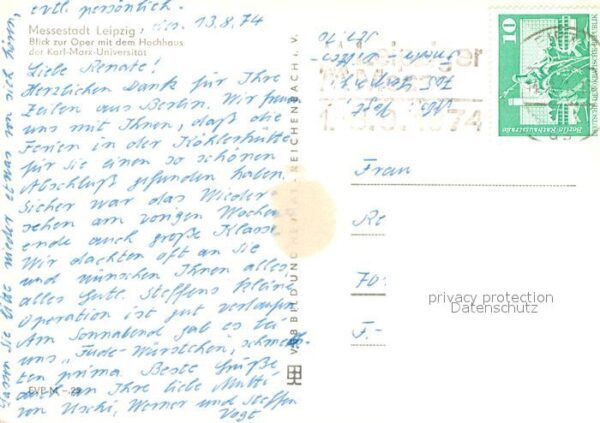 evtl. persönlich.
Messestadt Leipzig, den 13.8.74
Blick zur Oper mit dem Hochhaus
der Karl-Marx-Universität
Liebe Renate!
Herzlichen Dank für Ihre
Zeilen aus Berlin. Wir freuen
uns mit Ihnen, daß die
Ferien in der Köhlerhütte
für sie einen so schönen
Abschluß gefunden haben.
Sicher war das Wieder-
sehen am vorigen Wochen-
ende auch große Klasse.
Wir dachten oft an Sie
und wünschen Ihnen alles
alles Gute. Steffens kleine
Operation ist gut verlaufen.
Am Sonnabend gab es bei
uns „Fude-Würstchen", schmeck-
ten prima. Beste Grüße
auch an Ihre liebe Mutti
von Uschi, Werner und Steffen
Vogt
EVP M –.25
Lassen Sie bitte wieder etwas von sich hören,
VEB BILD UND HEIMAT REICHENBACH i. V.
Abs. Vogt
705 Leipzig
Leipziger
1974
10
Berlin Rathausstraße
DEUTSCHE DEMOKRATISCHE REPUBLIK
Frau
Re
70
F.-
privacy protection
Datenschutz